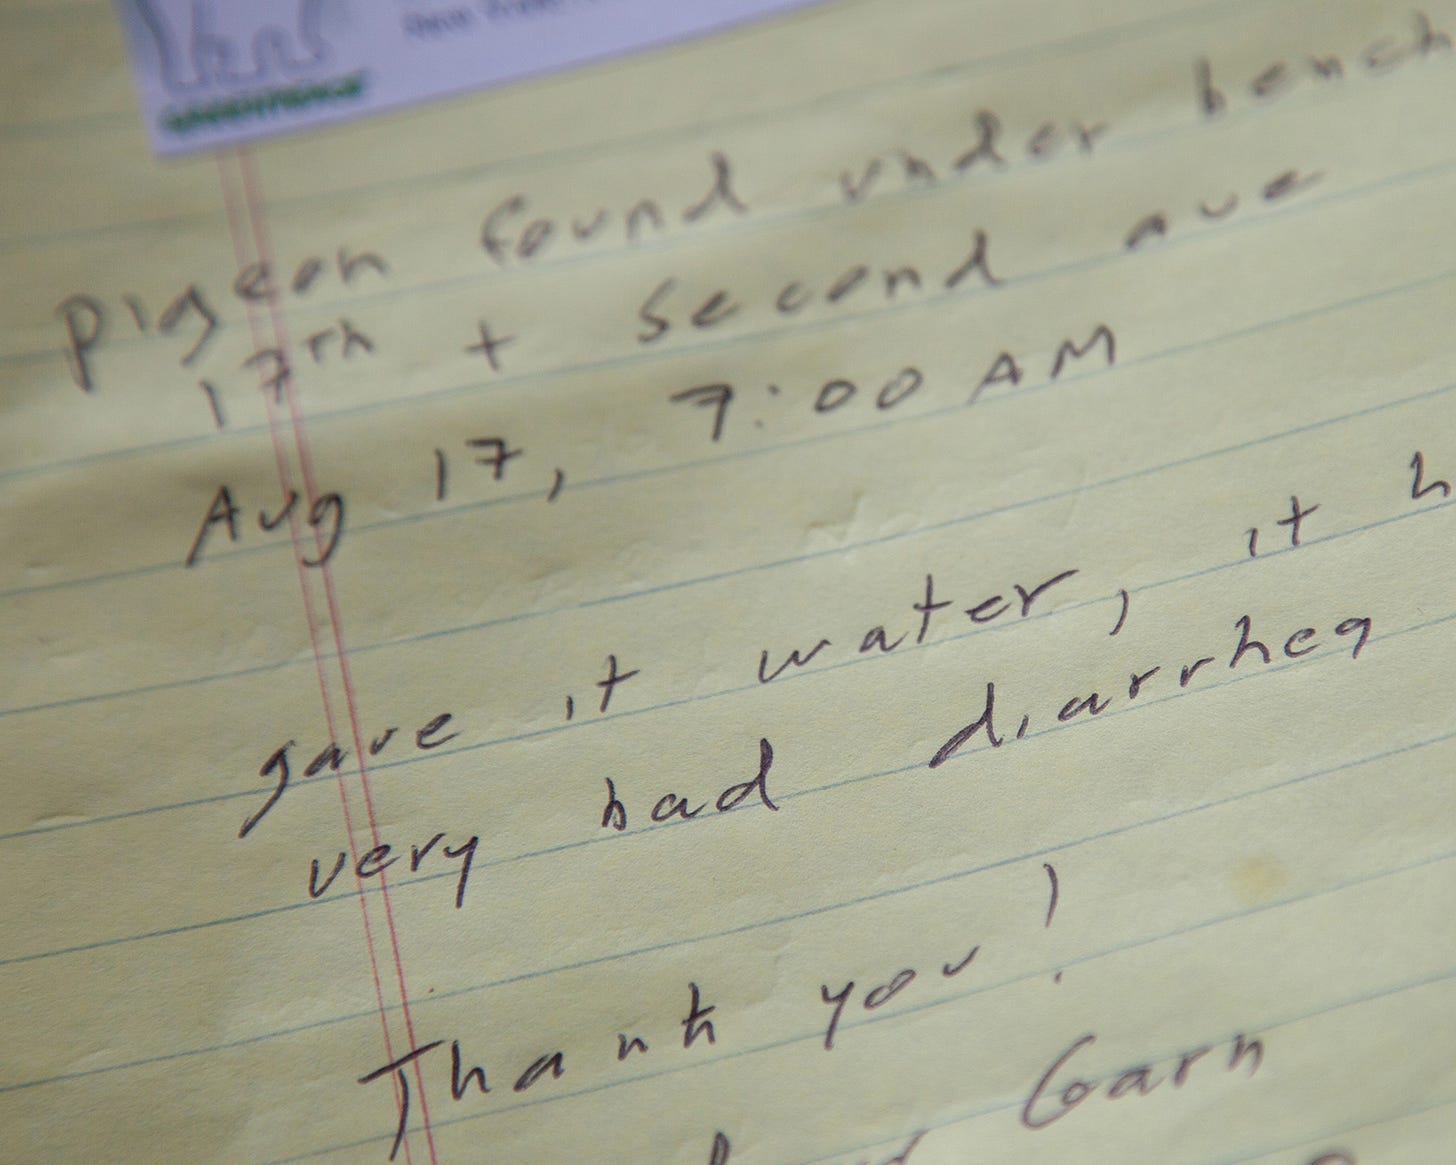 GREENPEACE
pigeon found under bench
17th + second ave
Aug 17, 7:00 AM
gave it water, it h
very bad diarrhea
Thank you!
Garn